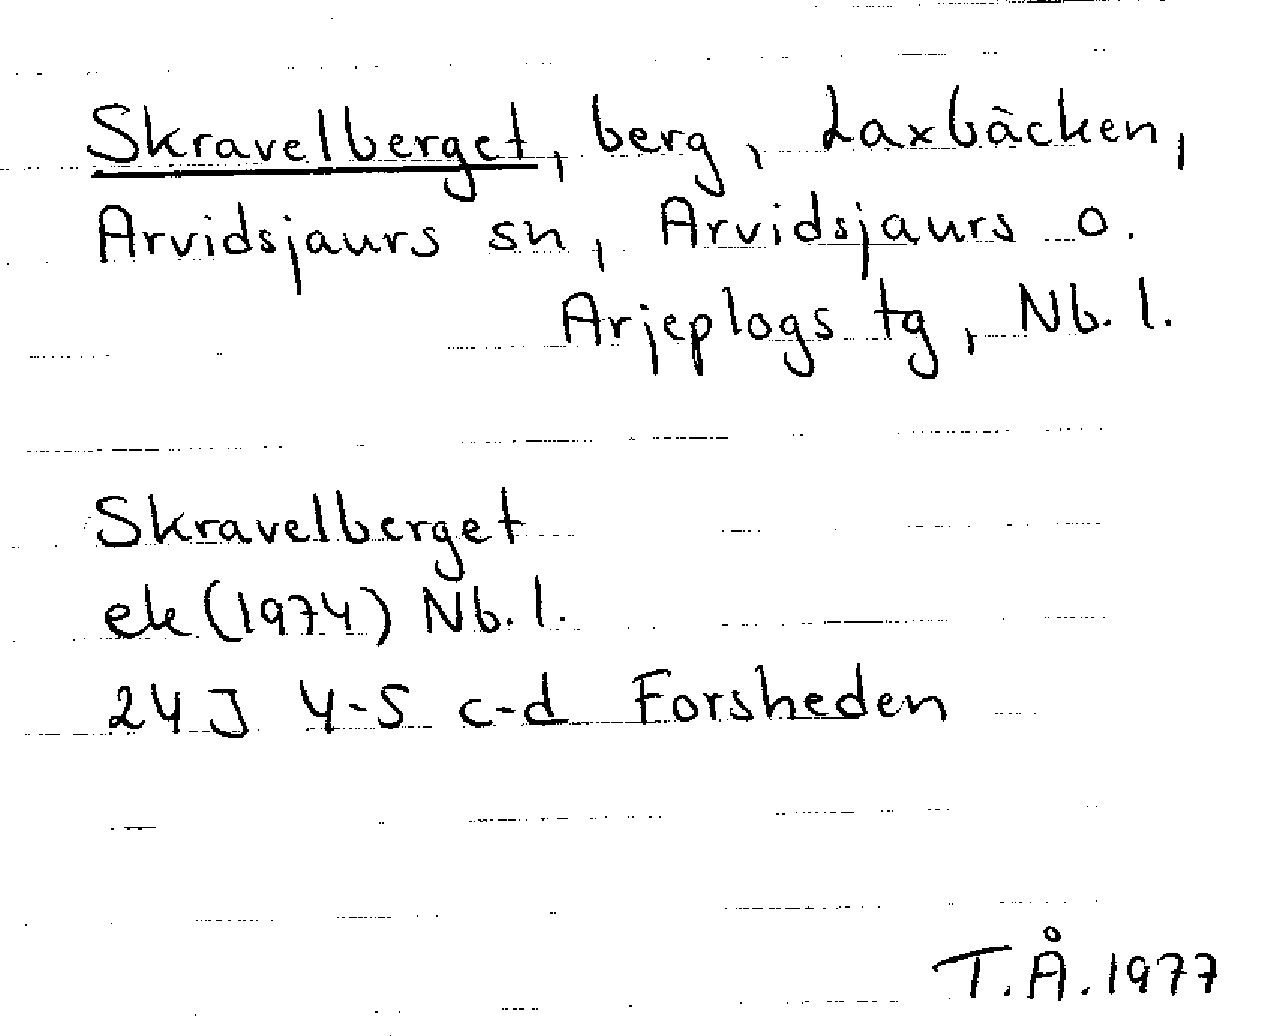 Skravelberget, berg, Laxbäcken,
Arvidsjaurs sn, Arvidsjaurs o.
Arjeplogs tg, Nb. l.
Skravelberget
ek (1974) Nb. l.
24J 4-5 c-d Forsheden
T.Å. 1977